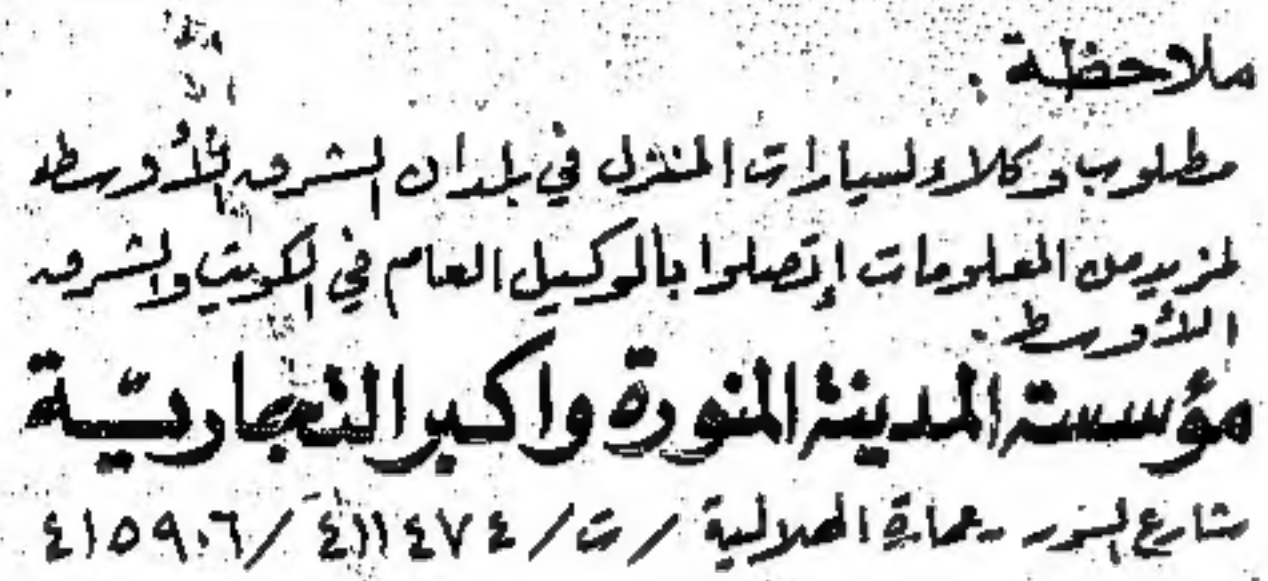 ملاحظة .
مطلوب وكلاء لسيارات المنزل في بلدان الشرق الأوسط
لمزيد من المعلومات إتصلوا بالوكيل العام في الكويت والشرق
الأوسط .
مؤسسة المدينة المنورة واكبر التجاريّة
شارع السور - عمارة الهلالية / ت / ٤١١٤٧٤ / ٤١٥٩٠٦